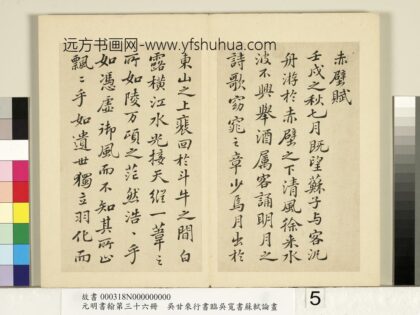 远方书画网-www.yfshuhua.com
赤壁賦
壬戌之秋七月既望蘇子与客汎
舟游於赤壁之下清風徐来水
波不興舉酒属客誦明月之
詩歌窈窕之章少焉月出於
東山之上裵回於斗牛之間白
露橫江水光接天縱一葦之
所如陵万頃之茫然浩〻乎
如憑虛御風而不知其所止
飄〻乎如遺世獨立羽化而
故書 000318N000000000
元明書翰第三十六冊 吳甘來行書臨吳寬書蘇軾論畫
5